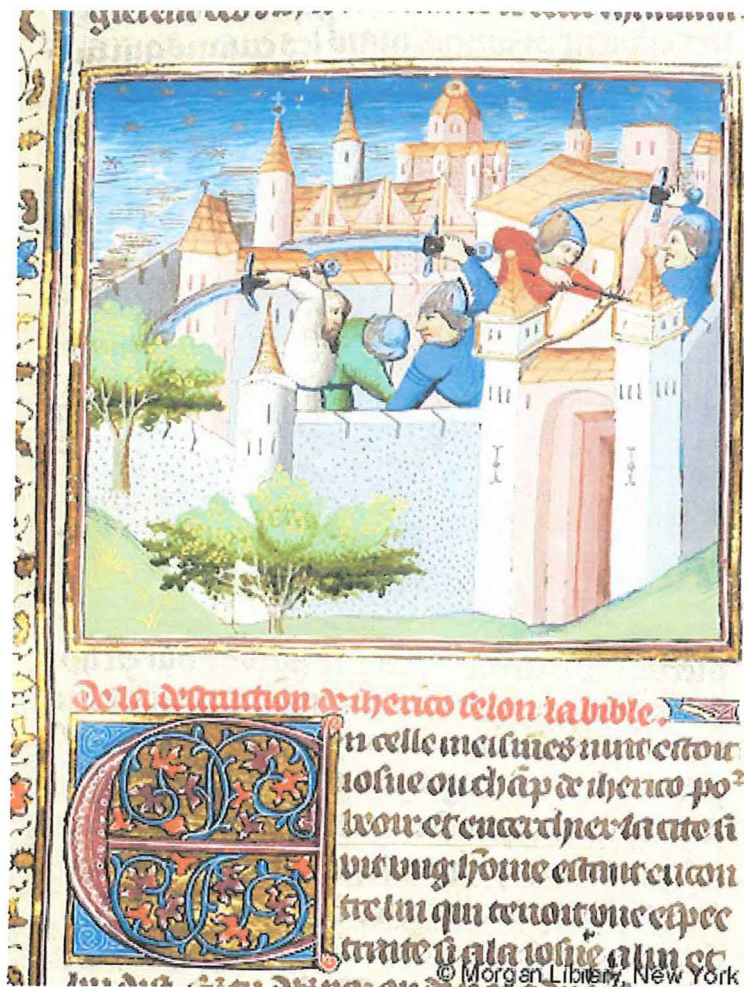 de la destruction de iherico selon la bible.
En celle meismes nuit estoit
iosue ou chāp de iherico po²
veoir et encerchier la cite si
vit ung hōme estant encon
tre lui qui tenoit une espee
traite si ala iosue a lui et
© Morgan Library, New York